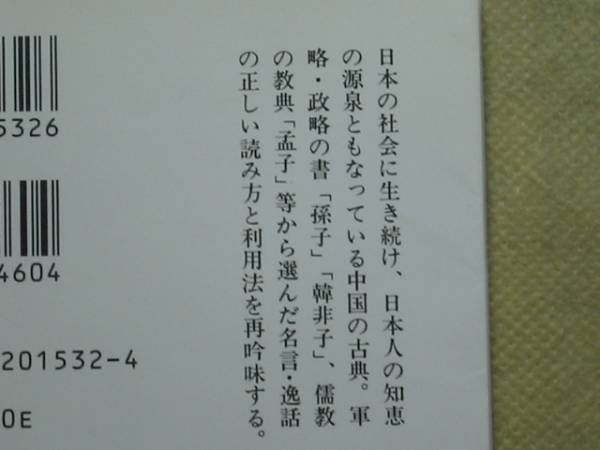 日本の社会に生き続け、日本人の知恵
の源泉ともなっている中国の古典。軍
略・政略の書「孫子」「韓非子」、儒教
の教典「孟子」等から選んだ名言・逸話
の正しい読み方と利用法を再吟味する。
5326
4604
201532-4
0E